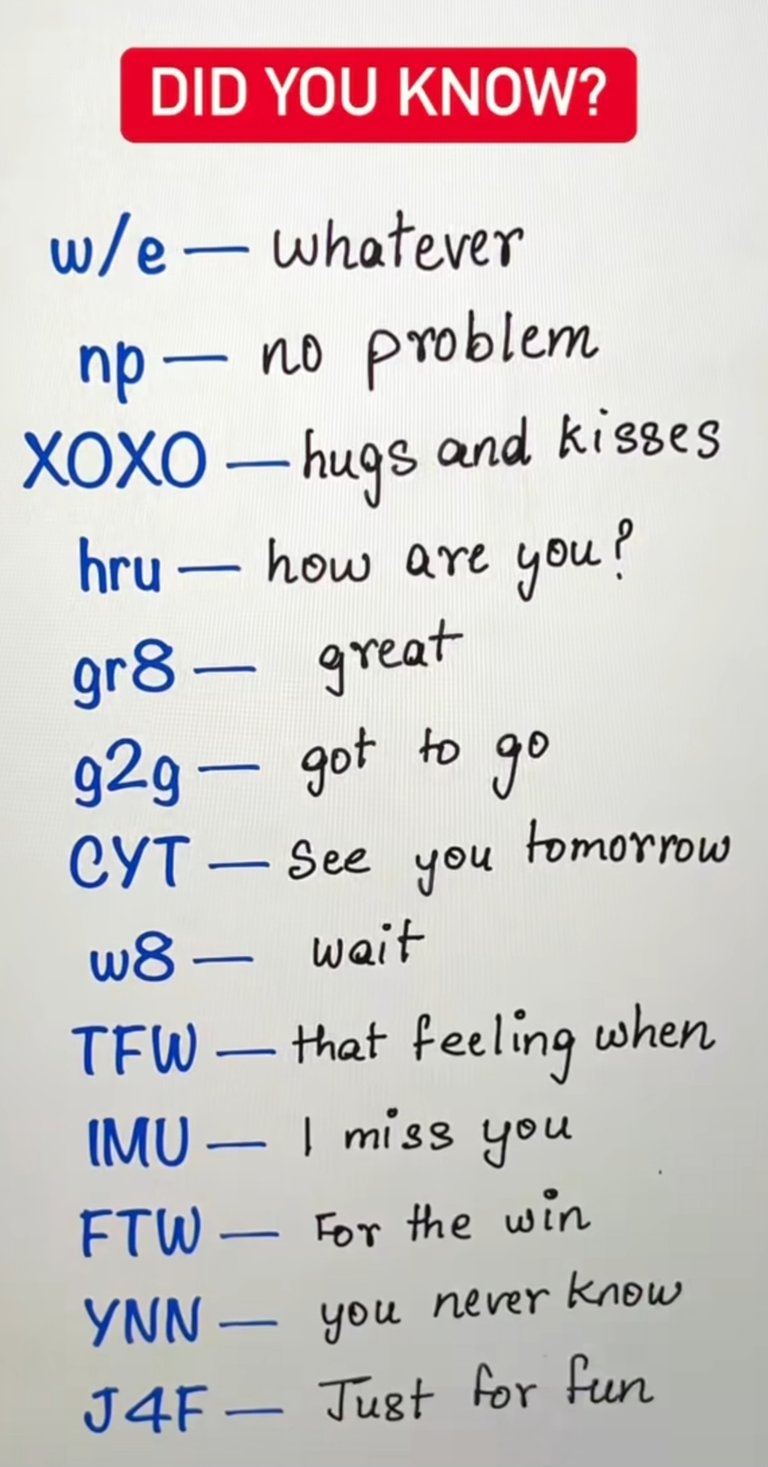 DID YOU KNOW?
w/e — whatever
np — no problem
XOXO — hugs and kisses
hru — how are you?
gr8 — great
g2g — got to go
CYT — See you tomorrow
w8 — wait
TFW — that feeling when
IMU — I miss you
FTW — For the win
YNN — you never know
J4F — Just for fun